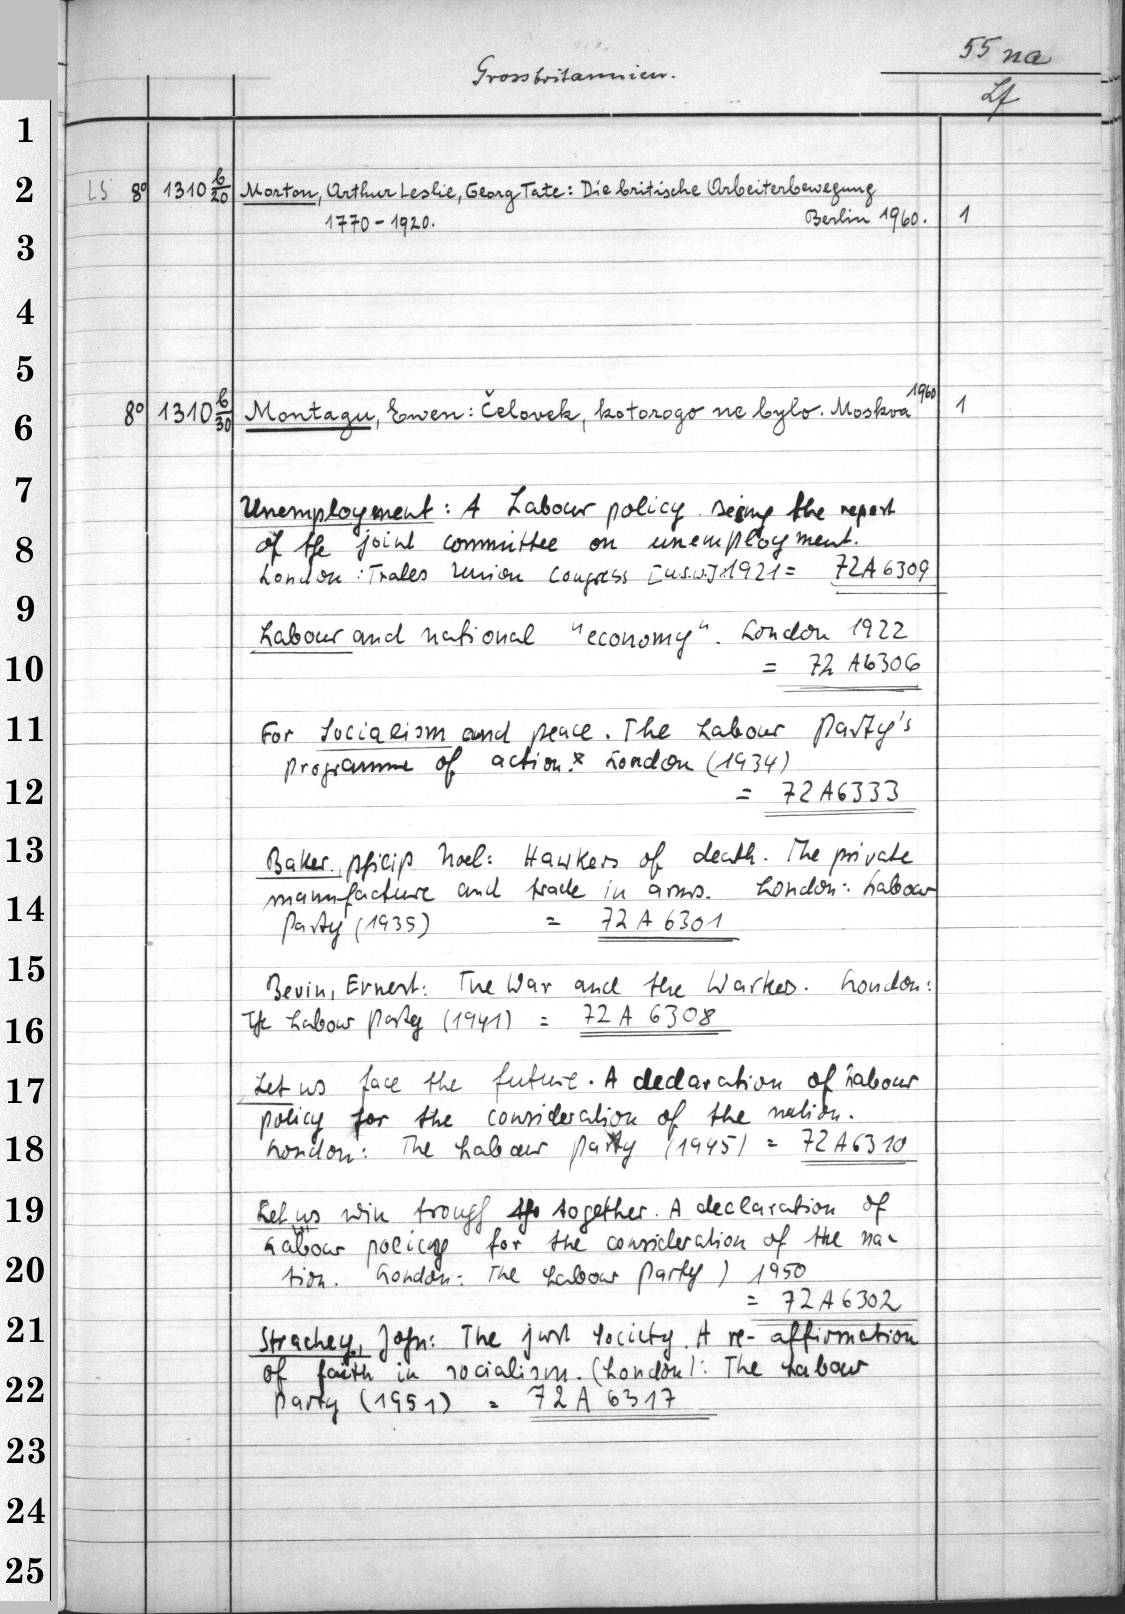 55 na
Grossbritannien.
Lf
1
2 LS 8° 1310 b/20 Morton, Arthur Leslie, Georg Tate: Die britische Arbeiterbewegung
1770-1920. Berlin 1960. 1
3
4
5
1960
6 8° 1310 b/30 Montagu, Ewen: Čelovek, kotorogo ne bylo. Moskva 1
7 Unemployment: A Labour policy. Being the report
8 of the joint committee on unemployment.
London: Trades Union Congress [u.s.w.] 1921 = 72A6309
9
Labour and national "economy". London 1922
10 = 72 A6306
11 For Socialism and peace. The Labour Party's
programme of action. London (1934)
12 = 72A6333
13 Baker, Philip Noel: Hawkers of death. The private
14 manufacture and trade in arms. London: Labour
Party (1935) = 72 A 6301
15 Bevin, Ernest: The War and the Workers. London:
16 The Labour Party (1941) = 72 A 6308
17 Let us face the future. A declaration of Labour
policy for the consideration of the nation.
18 London: The Labour Party (1945) = 72A6310
19 Let us win trough together. A declaration of
Labour policy for the consideration of the na-
20 tion. London: The Labour Party) 1950
= 72A6302
21 Strachey, John: The just Society. A re-affirmation
22 of faith in socialism. (London): The Labour
Party (1951) = 72A 6317
23
24
25